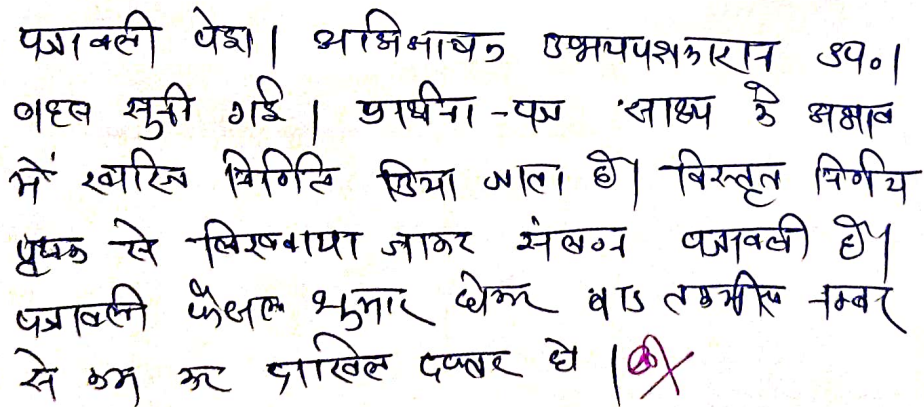 पत्रावली पेश। अभिभाषक उभयपक्षकारान उप०।
बहस सुनी गई। प्रार्थना-पत्र साक्ष्य के अभाव
में खारिज निर्णित किया जाता है। विस्तृत निर्णय
पृथक से लिखवाया जाकर संलग्न पत्रावली है।
पत्रावली फैसल शुमार होकर बाद तकमील नम्बर
से कम कर दाखिल दफ्तर हो।